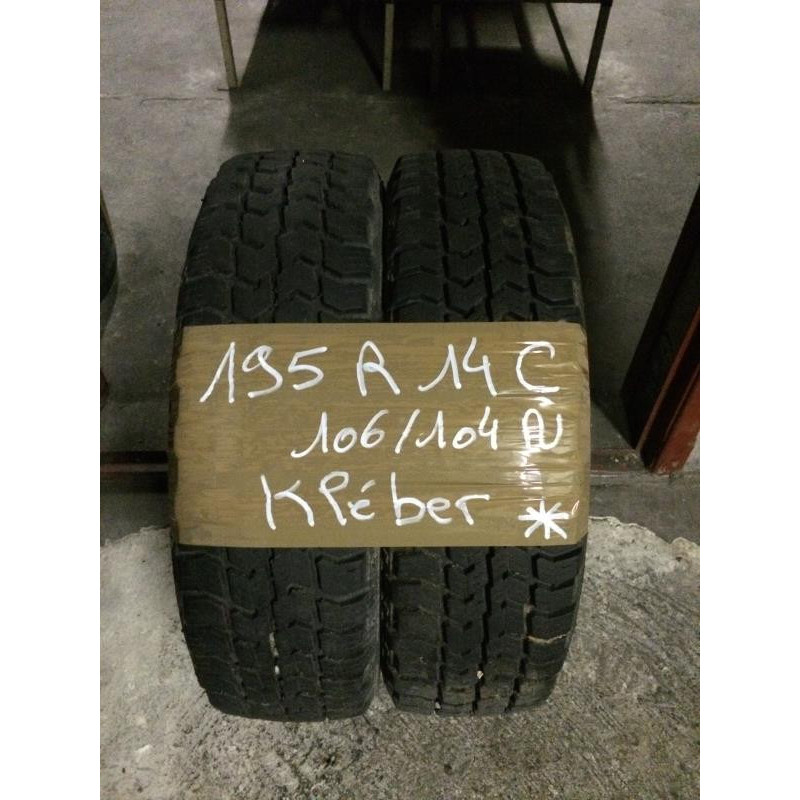 195 R 14 C
106/104 N
Kléber *